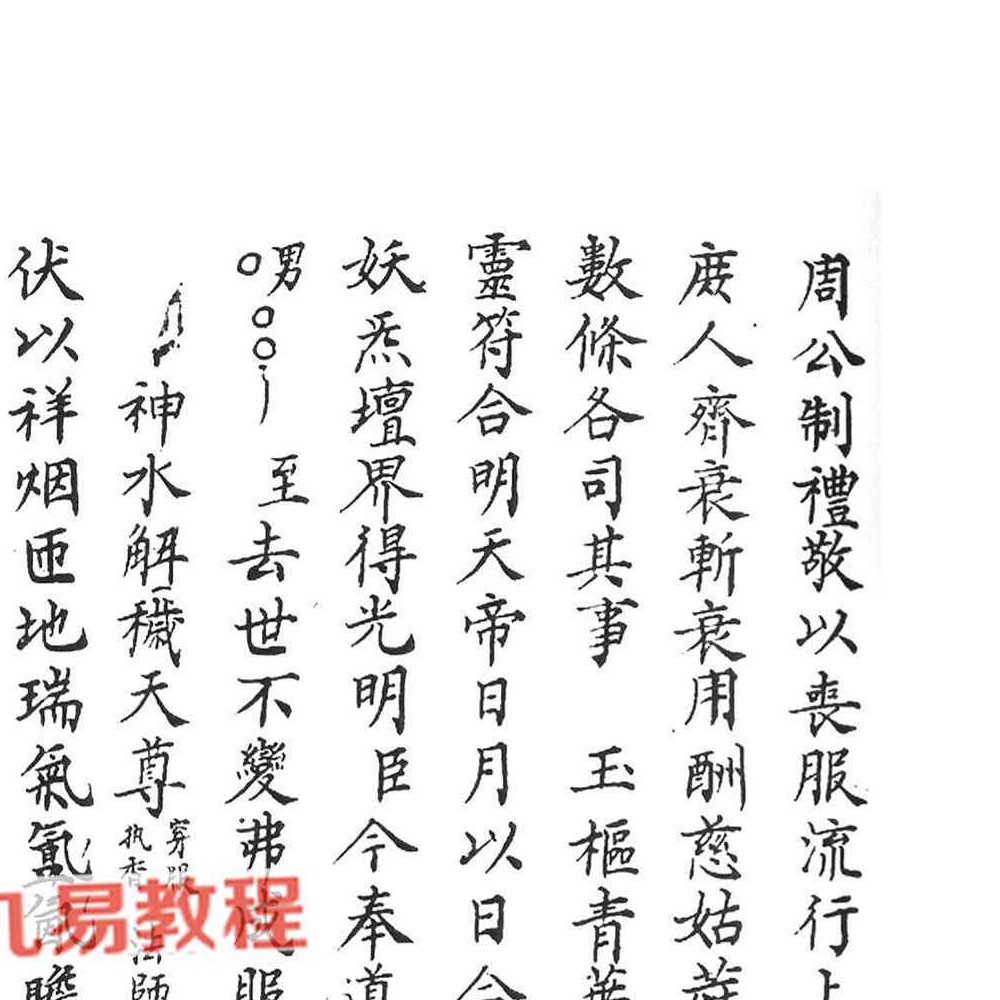 周公制禮敬以喪服流行
庻人齊衰斬衰用酬慈姑
數條各司其事 玉樞青華
靈符合明天帝日月以日合
妖炁壇界得光明臣今奉道
男○○○ 至去世不變弗成服
神水解穢天尊 穿服执香 法師
伏以祥烟匝地瑞氣氤氳瞻
易教程